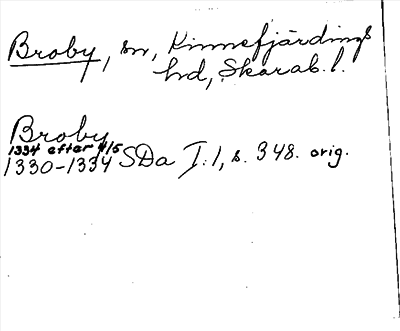 Broby, sn, Kinnefjärdings
hd, Skarab. l.
Broby
1334 efter 4/5
1330-1334 SDa I:1, s. 348. orig.